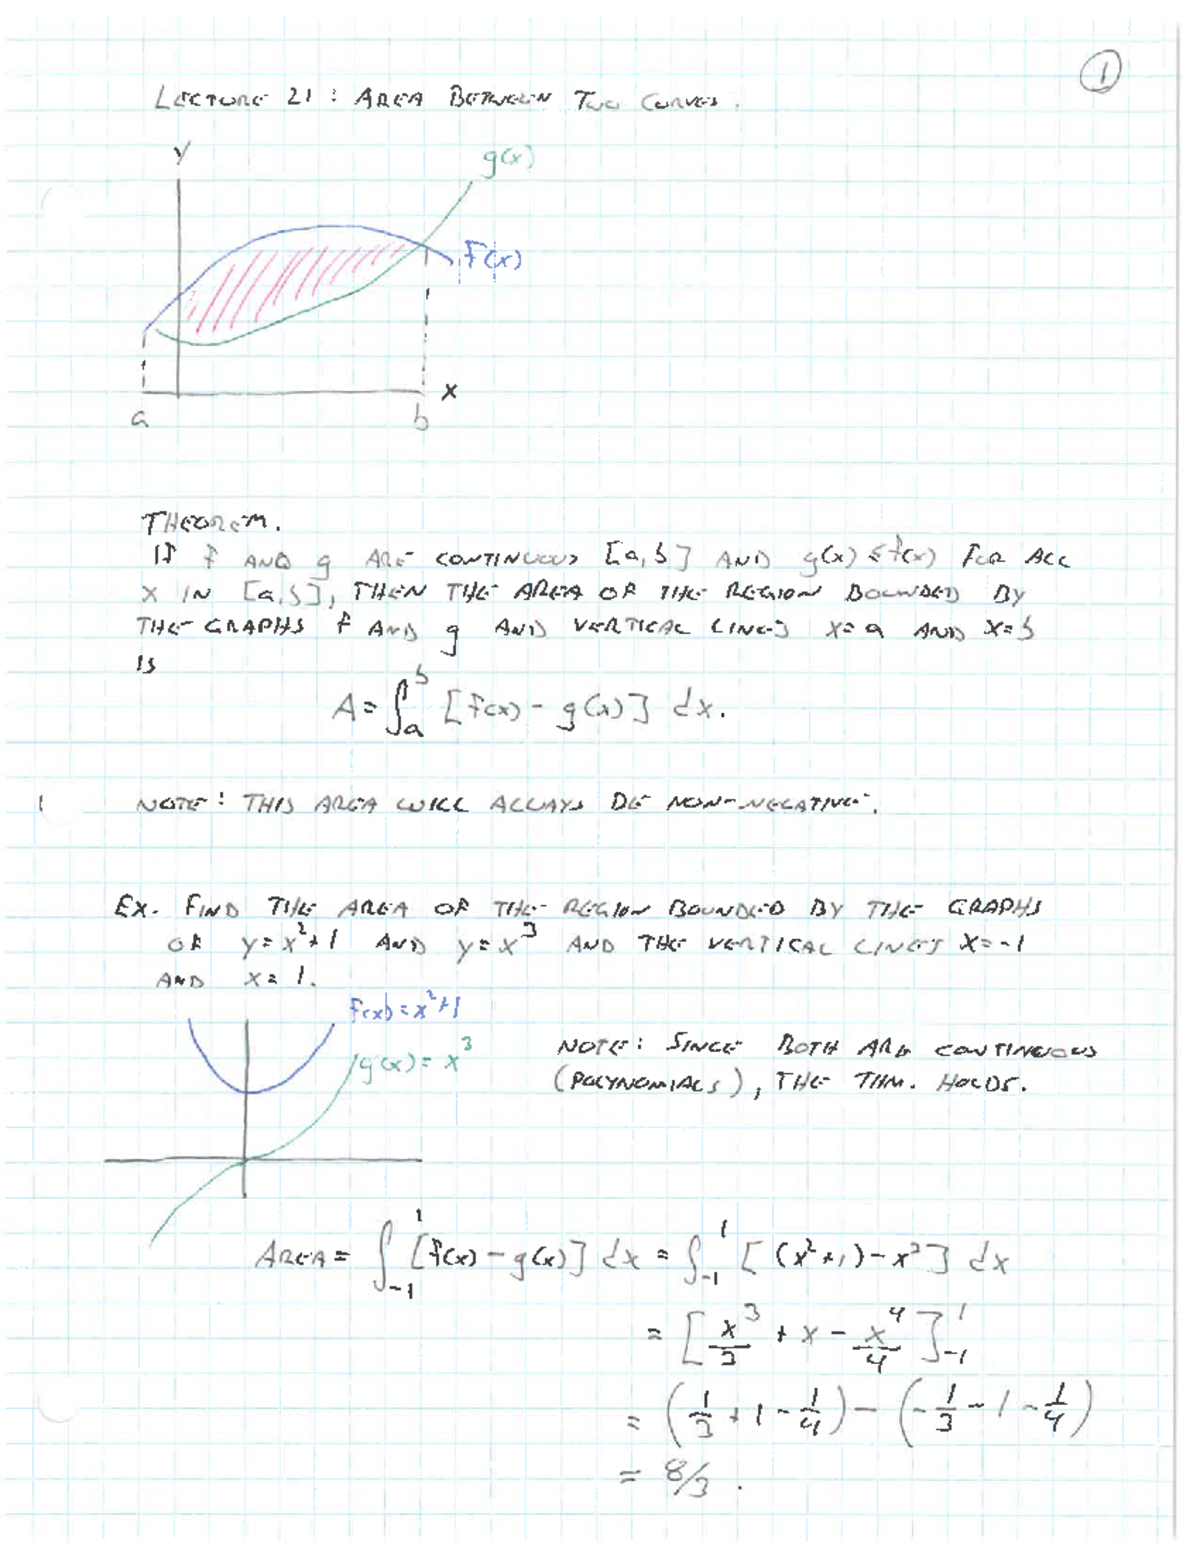 1
LECTURE 21: AREA BETWEEN TWO CURVES.
y
g(x)
f(x)
x
a b
THEOREM.
IF f AND g ARE CONTINUOUS [a,b] AND g(x) ≤ f(x) FOR ALL
x IN [a,b], THEN THE AREA OF THE REGION BOUNDED BY
THE GRAPHS f AND g AND VERTICAL LINES x=a AND x=b
IS
A = ∫_a^b [f(x) - g(x)] dx.
NOTE: THIS AREA WILL ALWAYS BE NON-NEGATIVE.
EX. FIND THE AREA OF THE REGION BOUNDED BY THE GRAPHS
OF y = x²+1 AND y = x³ AND THE VERTICAL LINES x=-1
AND x=1.
f(x) = x²+1
g(x) = x³
NOTE: SINCE BOTH ARE CONTINUOUS
(POLYNOMIALS), THE THM. HOLDS.
AREA = ∫_{-1}^1 [f(x) - g(x)] dx = ∫_{-1}^1 [(x²+1) - x³] dx
= [x³/3 + x - x⁴/4]_{-1}^1
= (1/3 + 1 - 1/4) - (-1/3 - 1 - 1/4)
= 8/3.